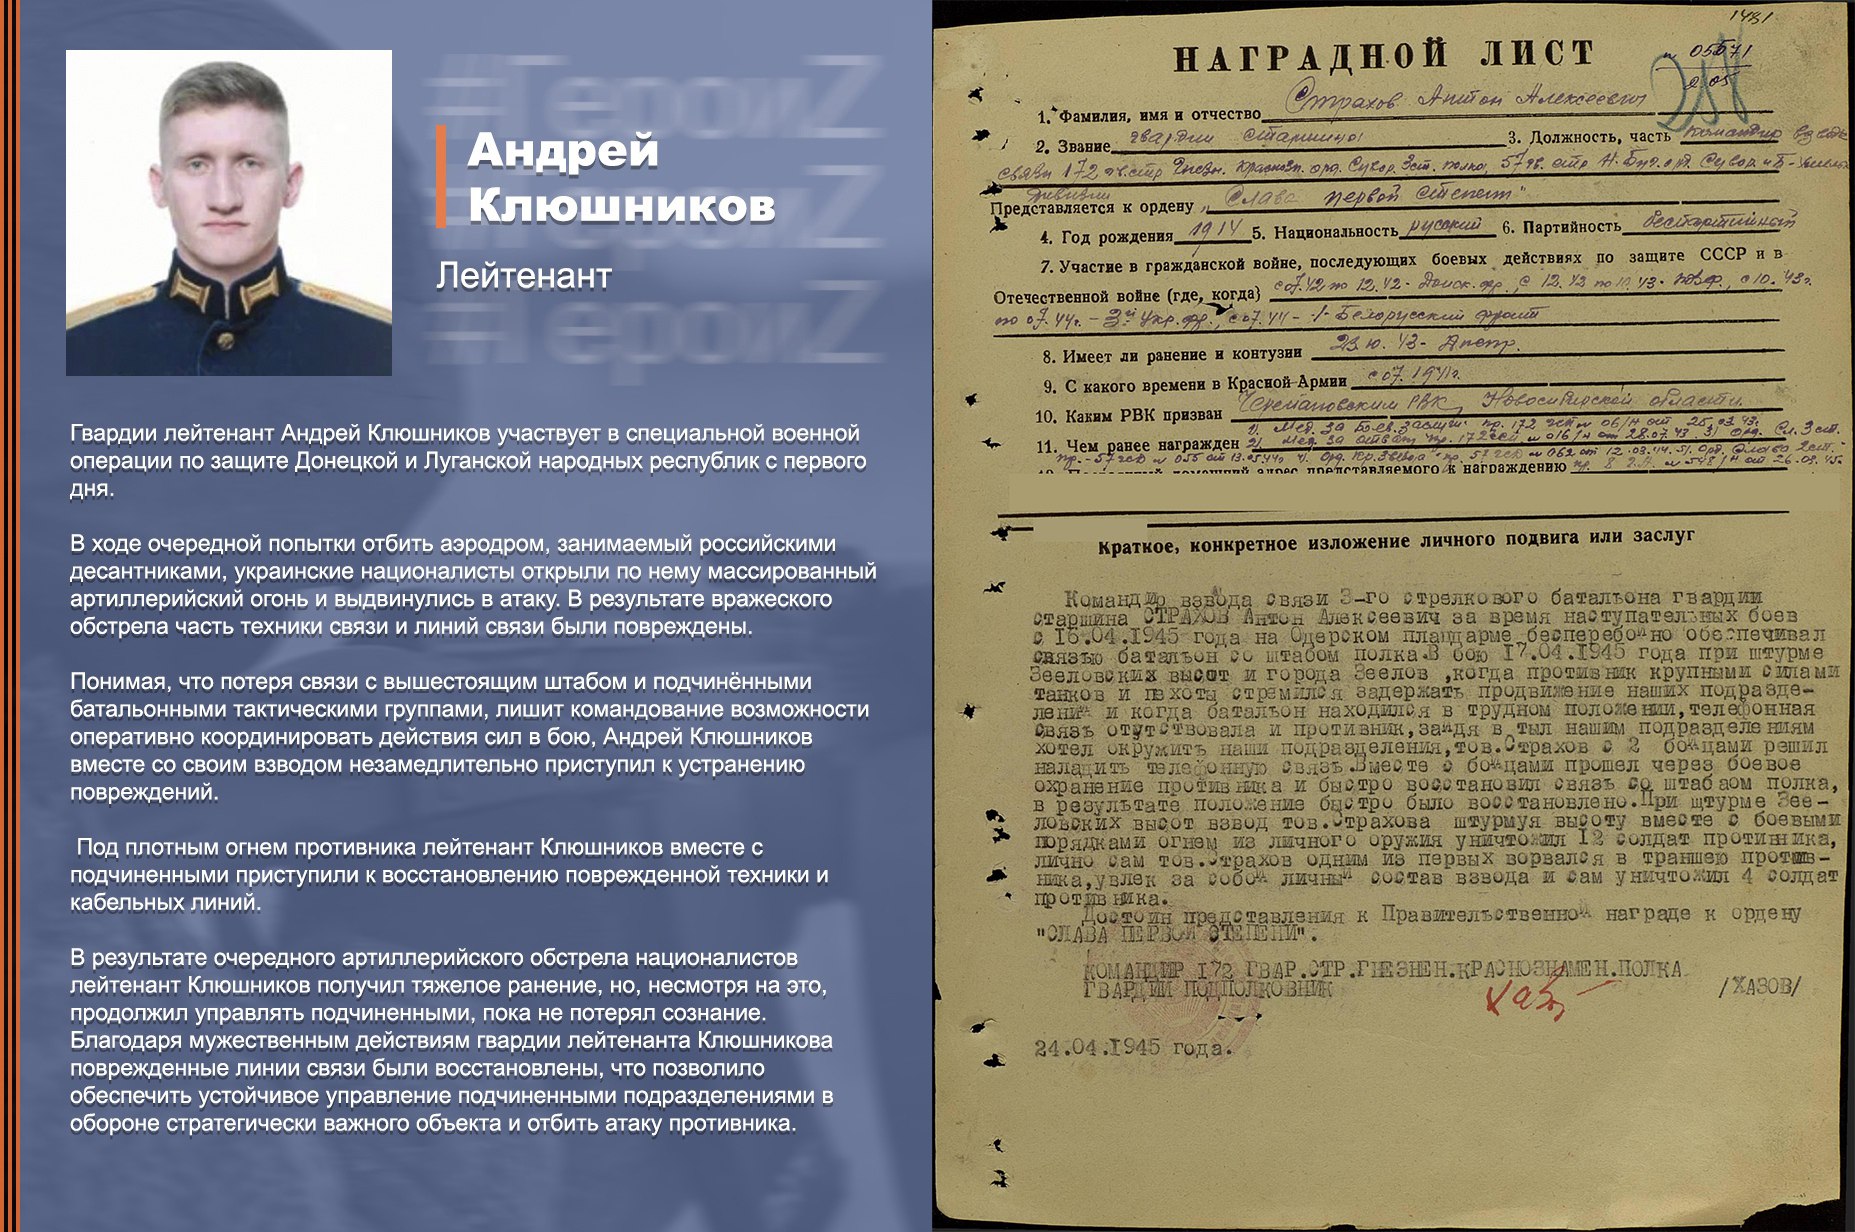 #ГероиZ
#ГероиZ
#ГероиZ
Андрей
Клюшников
Лейтенант
Гвардии лейтенант Андрей Клюшников участвует в специальной военной
операции по защите Донецкой и Луганской народных республик с первого
дня.
В ходе очередной попытки отбить аэродром, занимаемый российскими
десантниками, украинские националисты открыли по нему массированный
артиллерийский огонь и выдвинулись в атаку. В результате вражеского
обстрела часть техники связи и линий связи были повреждены.
Понимая, что потеря связи с вышестоящим штабом и подчинёнными
батальонными тактическими группами, лишит командование возможности
оперативно координировать действия сил в бою, Андрей Клюшников
вместе со своим взводом незамедлительно приступил к устранению
повреждений.
Под плотным огнем противника лейтенант Клюшников вместе с
подчиненными приступили к восстановлению поврежденной техники и
кабельных линий.
В результате очередного артиллерийского обстрела националистов
лейтенант Клюшников получил тяжелое ранение, но, несмотря на это,
продолжил управлять подчиненными, пока не потерял сознание.
Благодаря мужественным действиям гвардии лейтенанта Клюшникова
поврежденные линии связи были восстановлены, что позволило
обеспечить устойчивое управление подчиненными подразделениями в
обороне стратегически важного объекта и отбить атаку противника.
1431
НАГРАДНОЙ ЛИСТ
1. Фамилия, имя и отчество Страхов Антон Алексеевич
2. Звание гвардии старшина 3. Должность, часть командир взвода
связи 172 гв. стр.
дивизии
Представляется к ордену „Слава первой степени"
4. Год рождения 1914 5. Национальность русский 6. Партийность беспартийный
7. Участие в гражданской войне, последующих боевых действиях по защите СССР и в
Отечественной войне (где, когда) с 07.42 по 12.42 - Донск. фр., с 12.42 по 10.43 - ЮЗФ, с 10.43г.
по 07.44г. - 3й Укр. фр., с 07.44 - 1 Белорусский фронт
8. Имеет ли ранение и контузии 23.10.43 - Днепр.
9. С какого времени в Красной Армии с 07.1941г.
10. Каким РВК призван Черепановским РВК, Новосибирской области
11. Чем ранее награжден 1. Мед. За боев. заслуги пр. 172 гсп № 06/н от 25.03.43.
2. Мед. За отвагу пр. 172 гсп № 016/н от 28.07.43. 3) Орд. Сл. 3 ст.
пр. - 57 гсд № 055 от 13.05.44г. 4. Орд. Кр. Звезда пр. 57 гсд № 062 от 12.03.44. 5. Орд. Слава 2 ст.
представляемого к награждению пр. 8 г.А. № 548/н от 26.03.45.
Краткое, конкретное изложение личного подвига или заслуг
Командир взвода связи 3-го стрелкового батальона гвардии
старшина СТРАХОВ Антон Алексеевич за время наступательных боев
с 16.04.1945 года на Одерском плацдарме бесперебойно обеспечивал
связью батальон со штабом полка.В бою 17.04.1945 года при штурме
Зееловских высот и города Зеелов ,когда противник крупными силами
танков и пехоты стремился задержать продвижение наших подразде-
лений и когда батальон находился в трудном положении,телефонная
связь отутствовала и противник,зайдя в тыл нашим подразделениям
хотел окружить наши подразделения,тов.Страхов с 2 бойцами решил
наладить телефонную связь.Вместе с бойцами прошел через боевое
охранение противника и быстро восстановил связь со штабаом полка,
в результате положение быстро было восстановлено.При штурме Зее-
ловских высот взвод тов.Страхова штурмуя высоту вместе с боевыми
порядками огнем из личного оружия уничтожил 12 солдат противника,
лично сам тов.Страхов одним из первых ворвался в траншею против-
ника,увлек за собой личный состав взвода и сам уничтожил 4 солдат
противника.
Достоин представления к Правительственной награде к ордену
"СЛАВА ПЕРВОЙ СТЕПЕНИ".
КОМАНДИР 172 ГВАР.СТР.ГНЕЗНЕН.КРАСНОЗНАМЕН.ПОЛКА
ГВАРДИИ ПОДПОЛКОВНИК /ХАЗОВ/
24.04.1945 года.